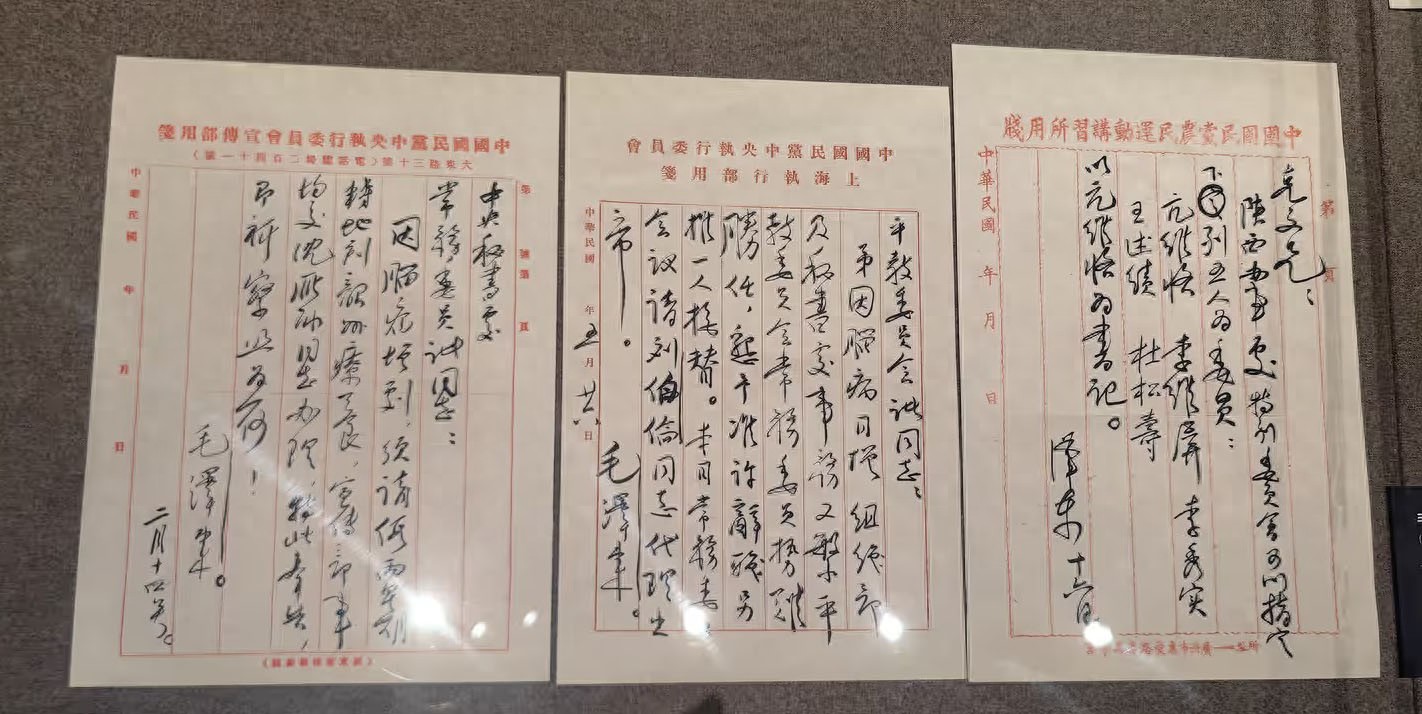 中國國民黨中央執行委員會宣傳部用箋
大東路三十號（電話 二百四十一號）
第 號 第 頁
中央秘書處
常務委員諸同志：
因腦病增劇，須請假兩星期
轉地到韶州療養，宣傳部事
均交沈雁冰同志办理，特此奉告，
即祈察照为荷！
毛澤東。
二月十四号。
中華民國 年 月 日
中國國民黨中央執行委員會
上海執行部用箋
平教委員会諸同志：
弟因腦病日增，組織部
及秘書處事務又繁，平
教委員会常務委員勢難
勝任，懇予准許辭職，另
推一人接替。本日常務委
会议請刘伯倫同志代理出
席。
毛澤東。
中華民國 年五月廿六日
中國國民黨農民運動講習所用牋
第 頁
亮文兄：
陝西 特別委員会可以指定
下列五人为委員：
亢維恪 李維屏 李秀实
王述績 杜松壽
以亢維恪为書记。
澤东 十六日
中華民國 年 月 日
所址——廣州市惠愛路